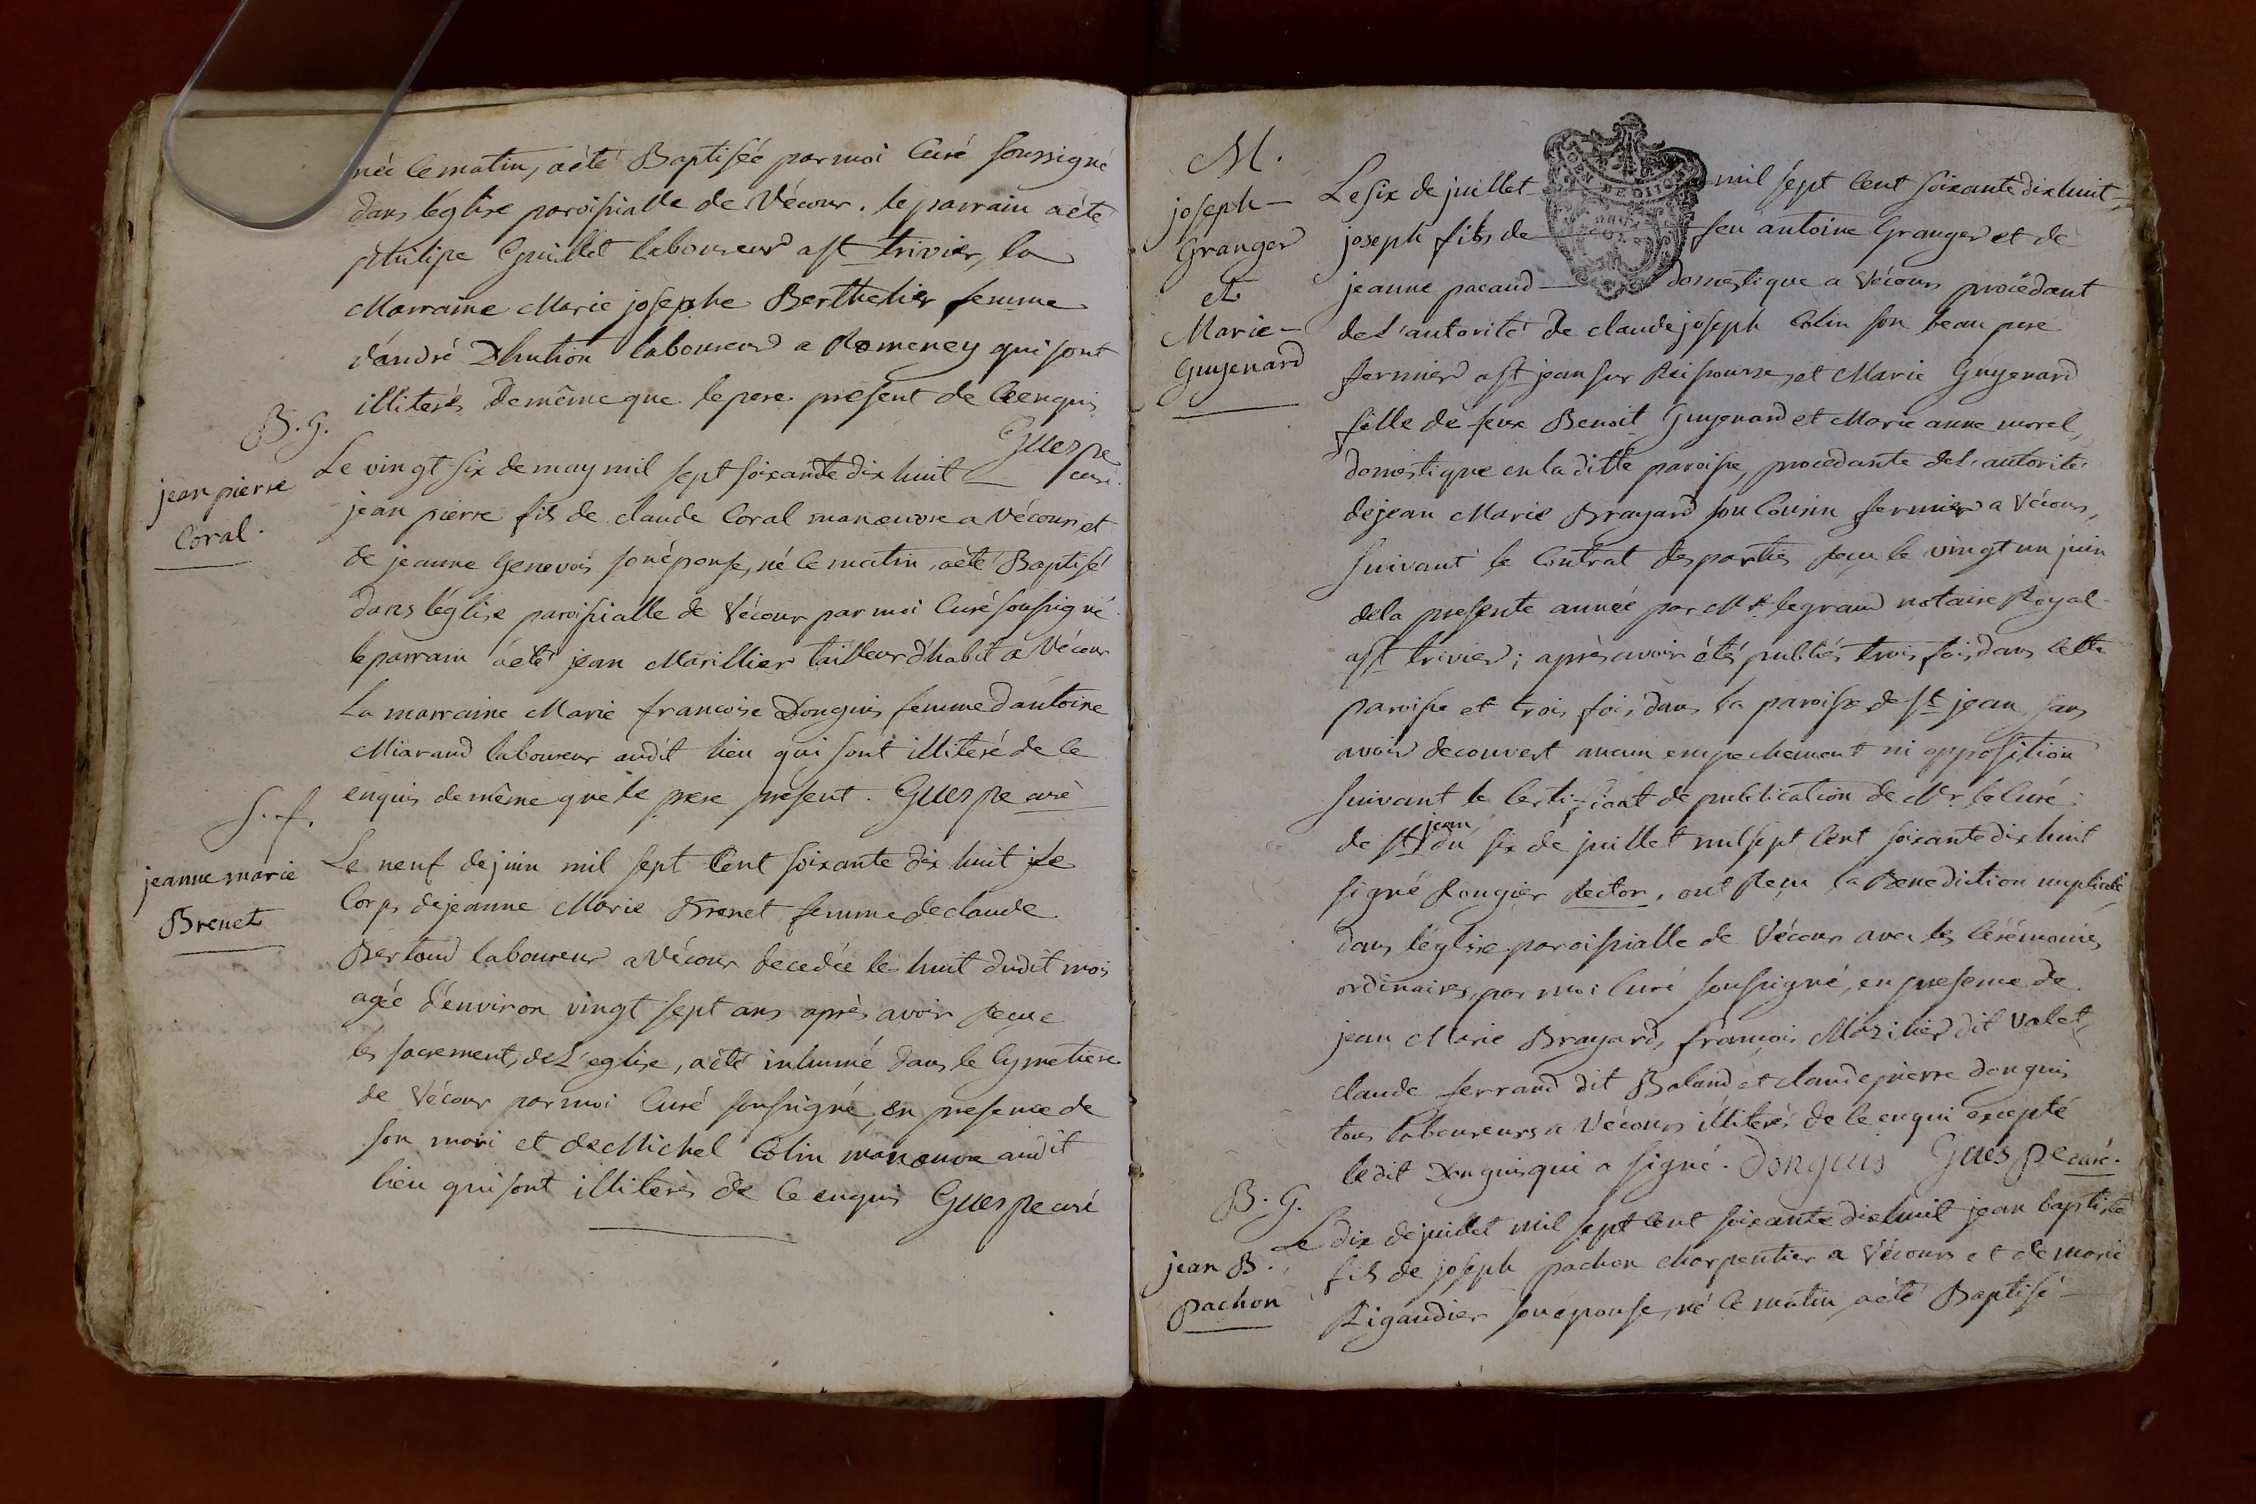 née ce matin, a été Baptisée par moi Curé soussigné
dans l'église paroissialle de Vécour. le parrain a été
philipe Guillet laboureur a St trivier, la
Marraine Marie josephe Berthelier femme
d'andré Dhution laboureur a Romeney qui sont
illiterés De même que le pere présent de Ce enquis
Guespe
curé.
B. G.
jean pierre
Coral.
Le vingt six de may mil sept soixante dix huit
jean pierre fils de claude Coral manœuvre a Vécour, et
de jeanne Genevois son épouse, né ce matin, a été Baptisé
dans l'église paroissialle de Vécour par moi Curé soussigné
le parrain a été jean Marillier tailleur d'habit a Vécour
La marraine Marie francoise Donguis femme d'antoine
Miarand laboureur audit lieu qui sont illiteré de ce
enquis de même que le pere présent. Guespe curé
S. f.
jeanne marie
Brenet
Le neuf de juin mil sept Cent soixante dix huit le
Corps de jeanne Marie Brenet femme de claude
Bertoud laboureur a Vécour decedée le huit dudit mois
agée d'environ vingt sept ans après avoir reçue
les sacrements de L'eglise, a été inhumé dans le Cymetiere
de Vécour par moi Curé soussigné, en presence de
son mari et de Michel Colin manœuvre audit
lieu qui sont illiterés de Ce enquis Guespe curé
M.
joseph
Granger
et
Marie
Guyenard
Le six de juillet mil sept Cent soixante dix huit,
joseph fils de feu antoine Granger et de
jeanne pacaud domestique a Vécour procédant
de L'autorité de claude joseph Colin son beau pere
fermier a St jean sur Reissouze, et Marie Guyenard
fille de feux Benoit Guyenard et Marie anne morel,
domestique en la ditte paroisse, procedante de L'autorité
de jean Marie Brayard son Cousin fermier a Vécour,
suivant le Contrat des parties reçu le vingt un juin
de la presente année par Mr. legrand notaire Royal
a St trivier; après avoir étés publiés trois fois dans cette
paroisse et trois fois dans la paroisse de St jean sans
avoir decouvert aucun empechement ni opposition
suivant le Certifiant de publication de Mr. le Curé
de St jean du six de juillet mil sept Cent soixante dix huit
signé Rougier Rector, ont Reçu la Benediction nuptiale
dans l'église paroissialle de Vécour avec les Cérémonies
ordinaires, par moi Curé soussigné, en presence de
jean Marie Brayard, françois Mazilier dit Valet,
claude ferrand dit Baland et claude pierre donguis
tous laboureurs a Vécour illiterés de Ce enqui excepté
ledit Donguis qui a signé. Donguis Guespe curé.
B. G.
jean B.
pachon
Le dix de juillet mil sept Cent soixante dix huit jean baptiste
fils de joseph pachon charpentier a Vécour et de marie
Rigaudier son épouse, né ce matin, a été Baptisé